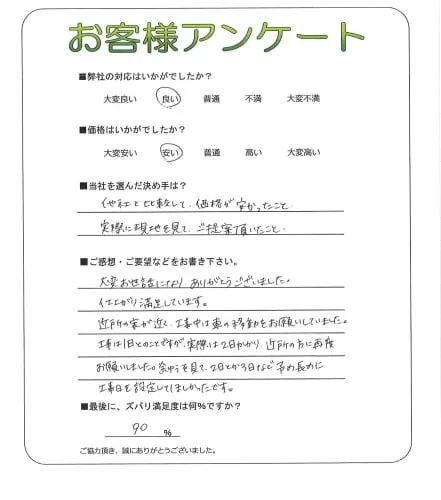 お客様アンケート
■弊社の対応はいかがでしたか？
大変良い 良い 普通 不満 大変不満
■価格はいかがでしたか？
大変安い 安い 普通 高い 大変高い
■当社を選んだ決め手は？
他社と比較して、価格が安かったこと
実際に現地を見て、ご提案頂いたこと
■ご感想・ご要望などをお書き下さい。
大変お世話になり、ありがとうございました。
仕上がり満足しています。
近所の家が近く、工事中は車の移動をお願いしていました。
工事は1日とのことですが、実際は2日かかり、近所の方に再度
お願いしました。余裕を見て、2日とか3日など予め長めに
工事日を設定してほしかったです。
■最後に、ズバリ満足度は何％ですか？
90 ％
ご協力頂き、誠にありがとうございました。